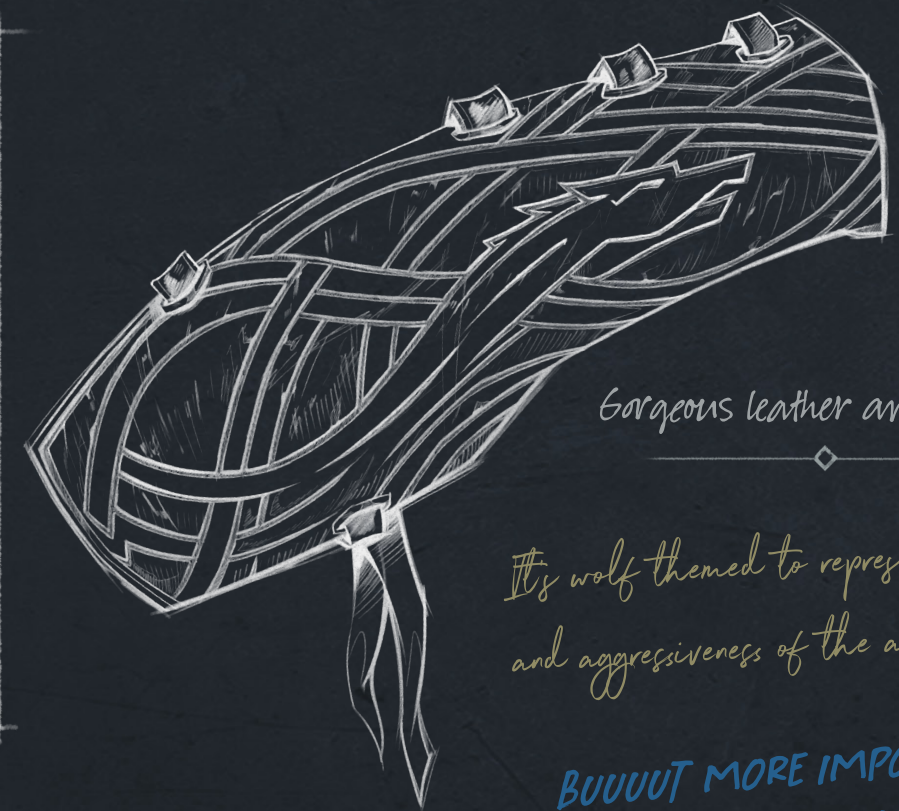 Gorgeous leather
It's wolf themed to
and aggressiveness of the
BUUUUT MORE